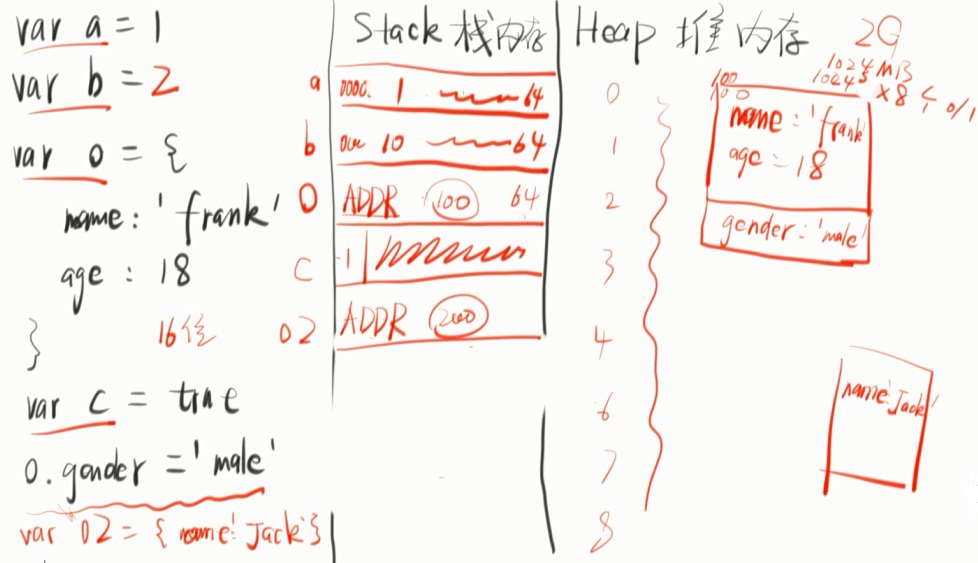 var a = 1
var b = 2
var o = {
name: 'frank'
age : 18
}
16位
var c = true
o.gender = 'male'
var o2 = { name: 'Jack' }
Stack 栈内存
a 1 64
b 10 64
o ADDR 100 64
c 1
o2 ADDR 200
Heap 堆内存
2G
1024 MB
1024
×8 个 0/1
0
1
2
3
4
6
7
8
100
name : 'frank'
age : 18
gender : 'male'
name: 'Jack'